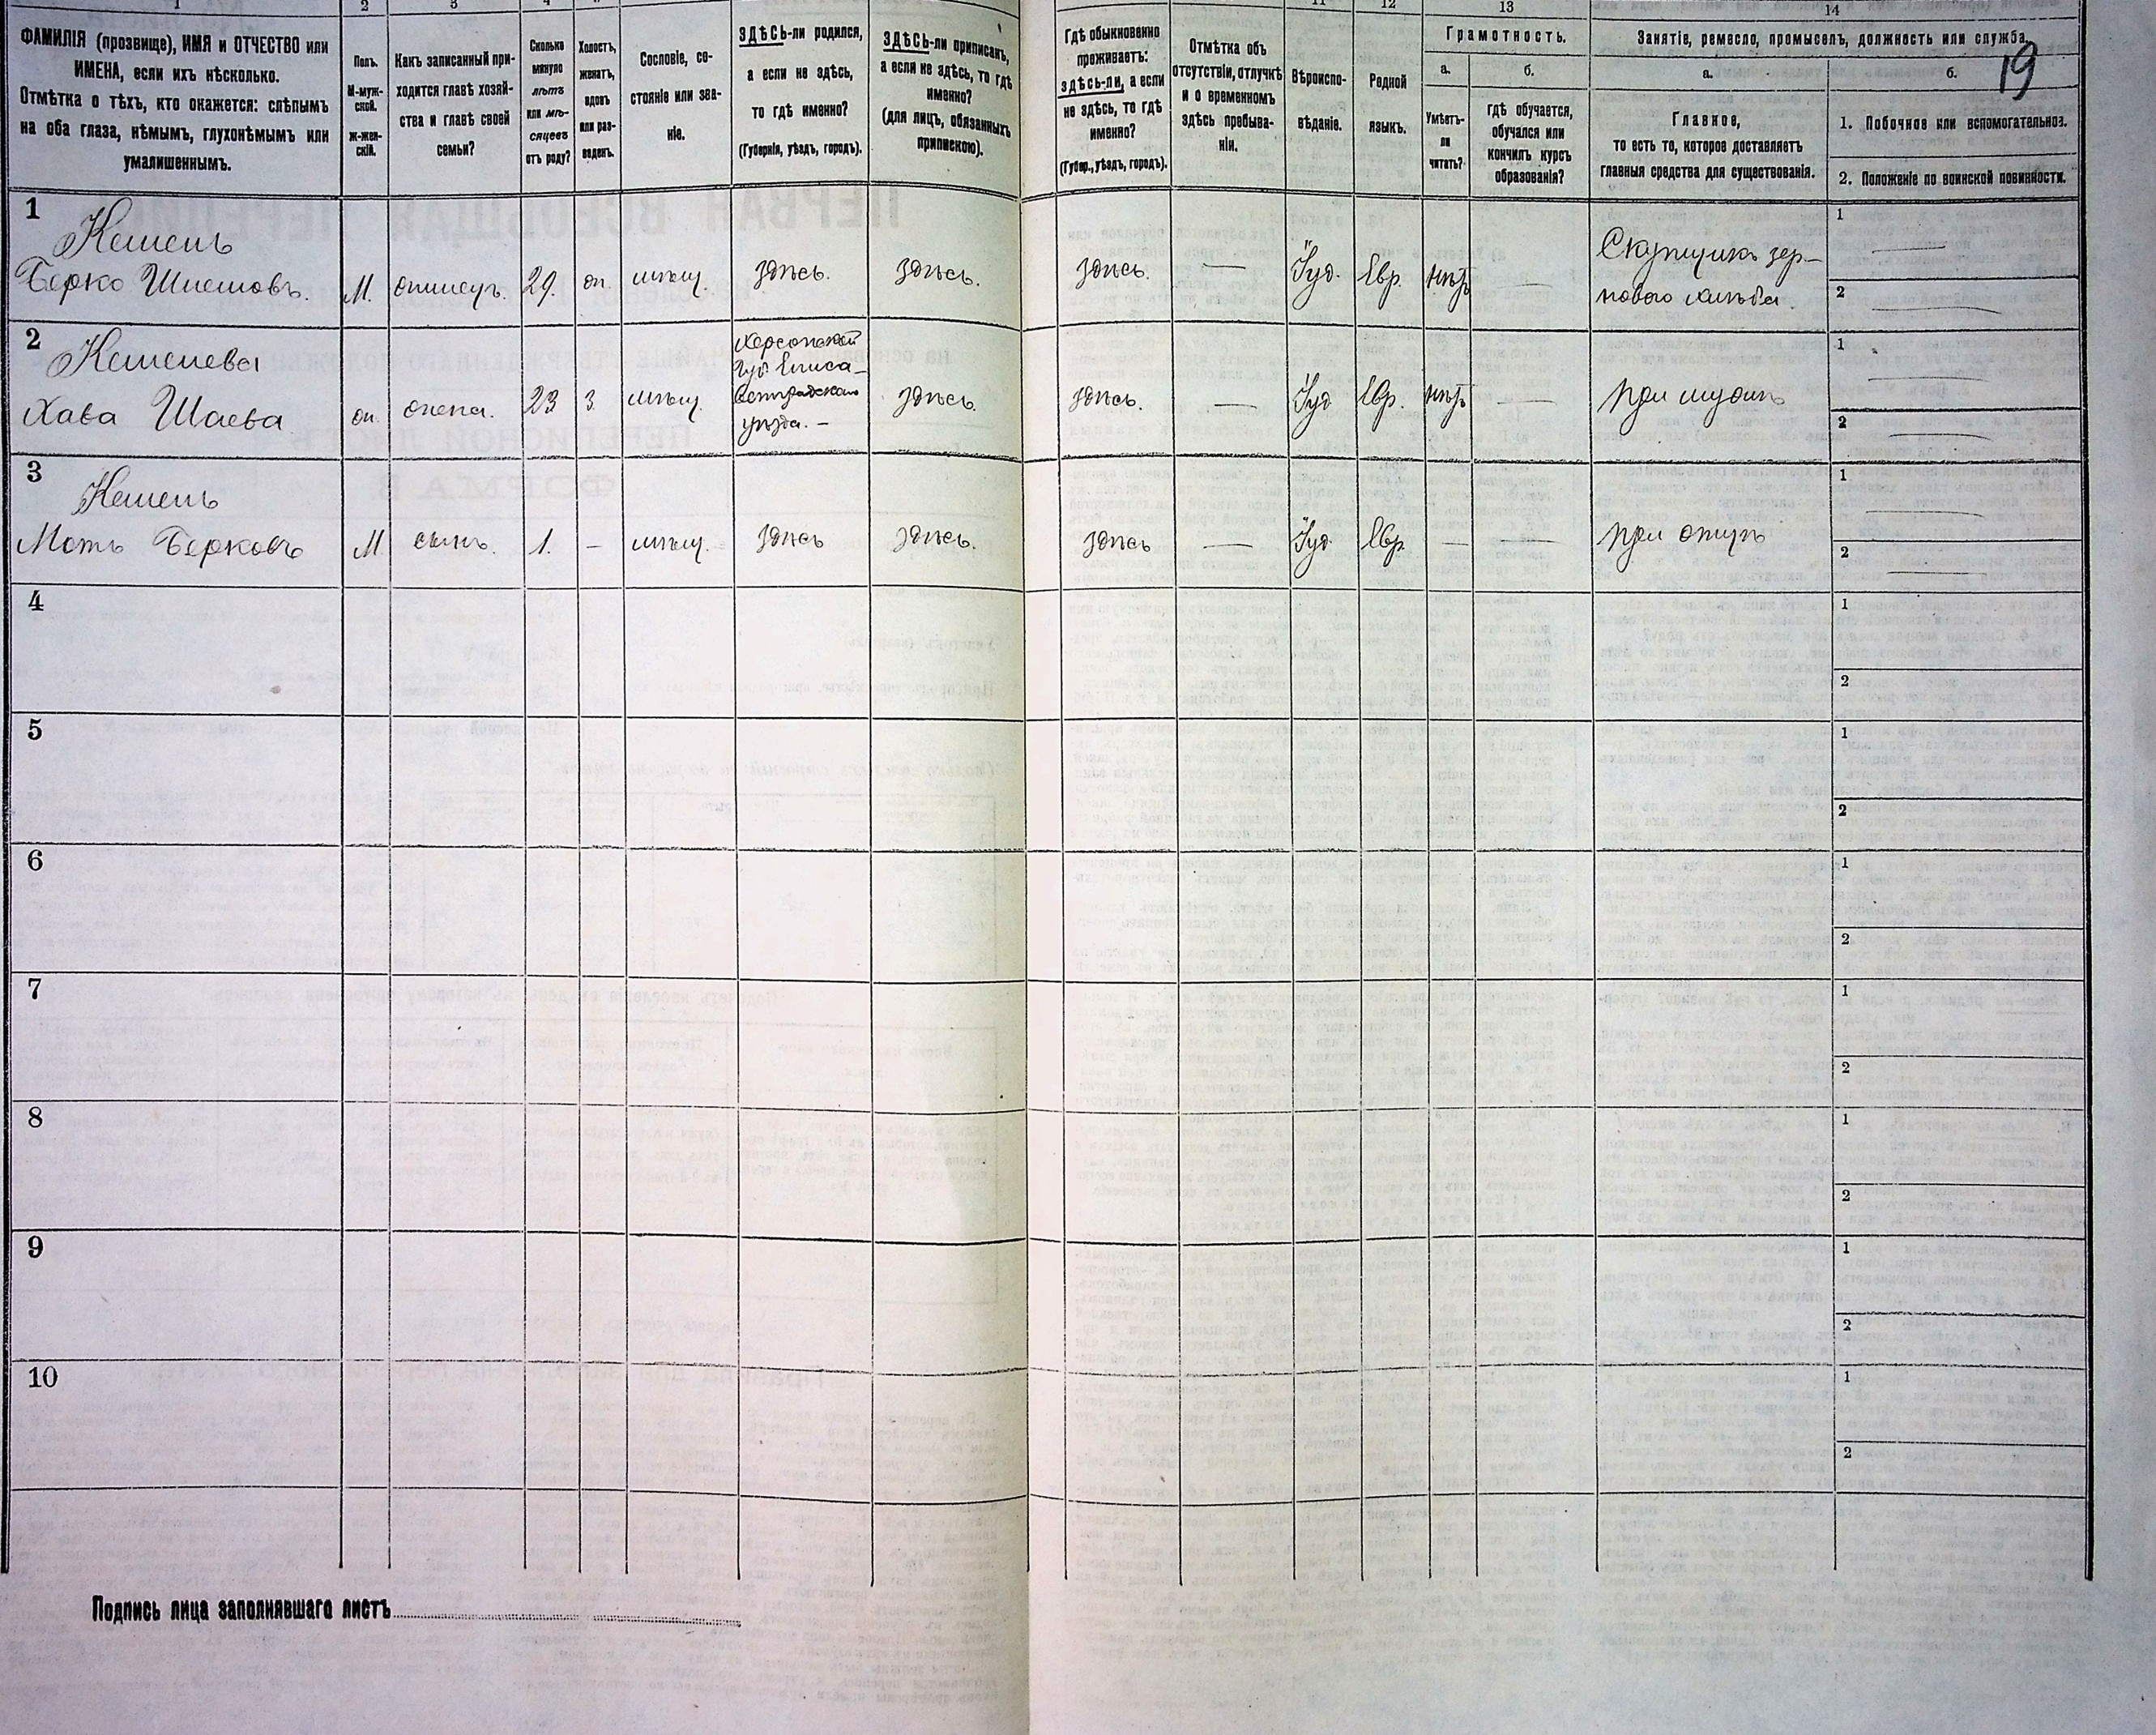 1 2 3 4 11 12 13 14
ФАМИЛІЯ (прозвище), ИМЯ и ОТЧЕСТВО или
ИМЕНА, если ихъ нѣсколько.
Отмѣтка о тѣхъ, кто окажется: слѣпымъ
на оба глаза, нѣмымъ, глухонѣмымъ или
умалишеннымъ.
Полъ.
М-муж-
ской.
Ж-жен-
скій.
Какъ записанный при-
ходится главѣ хозяй-
ства и главѣ своей
семьи?
Сколько
минуло
лѣтъ
или мѣ-
сяцевъ
отъ роду?
Холостъ,
женатъ,
вдовъ
или раз-
веденъ.
Сословіе, со-
стояніе или зва-
ніе.
ЗДѢСЬ-ли родился,
а если не здѣсь,
то гдѣ именно?
(Губернія, уѣздъ, городъ).
ЗДѢСЬ-ли приписанъ,
а если не здѣсь, то гдѣ
именно?
(для лицъ, обязанныхъ
припискою).
Гдѣ обыкновенно
проживаетъ:
здѣсь-ли, а если
не здѣсь, то гдѣ
именно?
(Губер., уѣздъ, городъ).
Отмѣтка объ
отсутствіи, отлучкѣ
и о временномъ
здѣсь пребыва-
ніи.
Вѣроиспо-
вѣданіе.
Родной
языкъ.
Грамотность.
а.
Умѣетъ-
ли
читать?
б.
гдѣ обучается,
обучался или
кончилъ курсъ
образованія?
Занятіе, ремесло, промыселъ, должность или служба.
19
а.
Главное,
то есть то, которое доставляетъ
главныя средства для существованія.
б.
1. Побочное или вспомогательное.
2. Положеніе по воинской повинности.
1
Кешень
Берко Шнемовъ. М. 29. мѣщ. здѣсь. здѣсь. здѣсь. — Іуд. Евр. нѣтъ —
Скупщикъ зер-
нового хлѣба.
1 —
2 —
2
Кешенева
Хава Шаева жена. 23 з. мѣщ.
Херсонской
Губ Елиса-
ветградскаго
уѣзда. —
здѣсь. здѣсь. — Іуд Евр. нѣтъ — при мужѣ
1 —
2 —
3
Кешень
Моть Берковъ М. сынъ. 1. — мѣщ. здѣсь здѣсь. здѣсь — Іуд. Евр. — — при отцѣ
1 —
2 —
4
1
2
5
1
2
6
1
2
7
1
2
8
1
2
9
1
2
10
1
2
Подпись лица заполнявшаго листъ